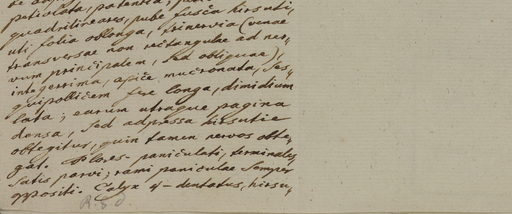 petiolata, patentia,
quadrilineares, pube fusca hirsuti,
uti folia oblonga, trinervia (venae
transversae non rectangulae ad ner-
vum principalem, sed obliquae),
integerrima, apice mucronata, ses-
quipollicem fere longa, dimidium
lata; earum utraque pagina
densa, sed adpressa hirsutie
obtegitur, quin tamen nervos obte-
gat. Flores- paniculati, terminales
satis parvi; rami paniculae semper
oppositi. Calyx 4-dentatus, hirsu-